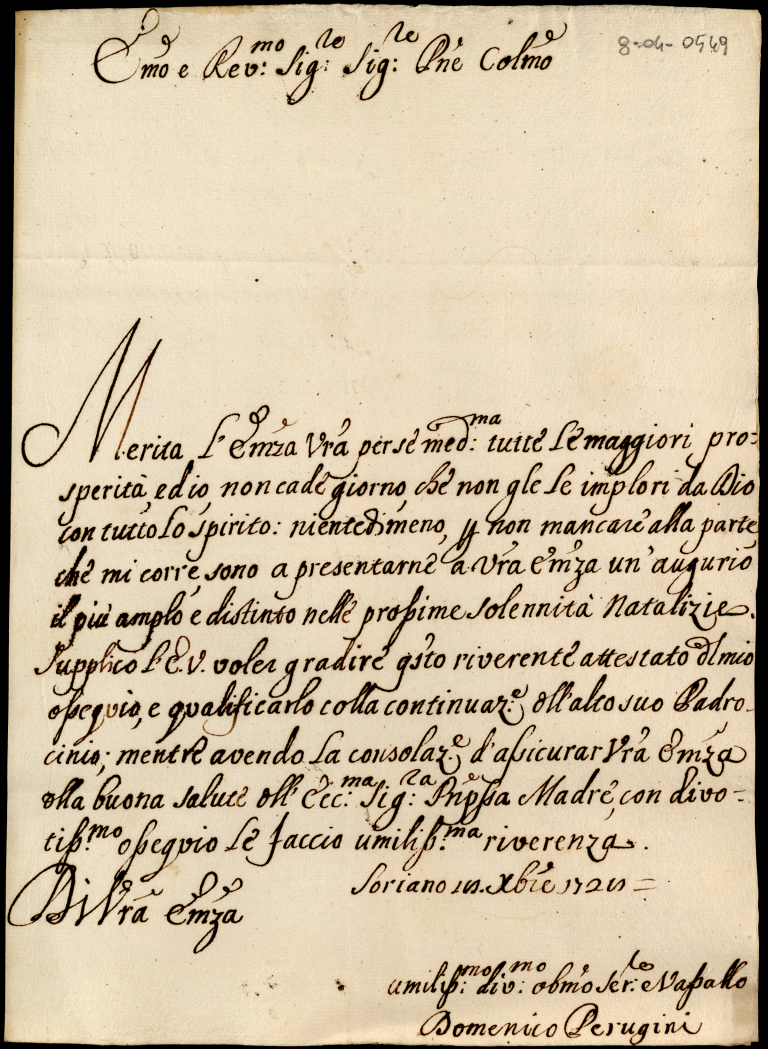 8-04-0549
Emo e Rev:mo Sig:re Sig:re Pne Colmo
Merita l'Emza Vra per se med:ma tutte le maggiori pro=
sperità, ed io non cade giorno, che non gle le implori da Dio
con tutto lo spirito: nientedimeno, p non mancare alla parte
che mi corre, sono a presentarne a Vra Emza un' augurio
il più amplo e distinto nelle prossime solennità Natalizie.
Supplico l'E.V. voler gradire qsto riverente attestato dl mio
ossequio, e qualificarlo colla continuaz.e dll'alto suo Padro-
cinio; mentre avendo la consolaz.e d'assicurar Vra Emza
dlla buona salute dll'Ecc:ma Sig:ra Pnpssa Madre, con divo-
tiss.mo ossequio le faccio umiliss.ma riverenza.
Soriano Xbre 172
Di Vra Emza
umiliss:mo div:mo obmo ser:re e Vassallo
Domenico Perugini